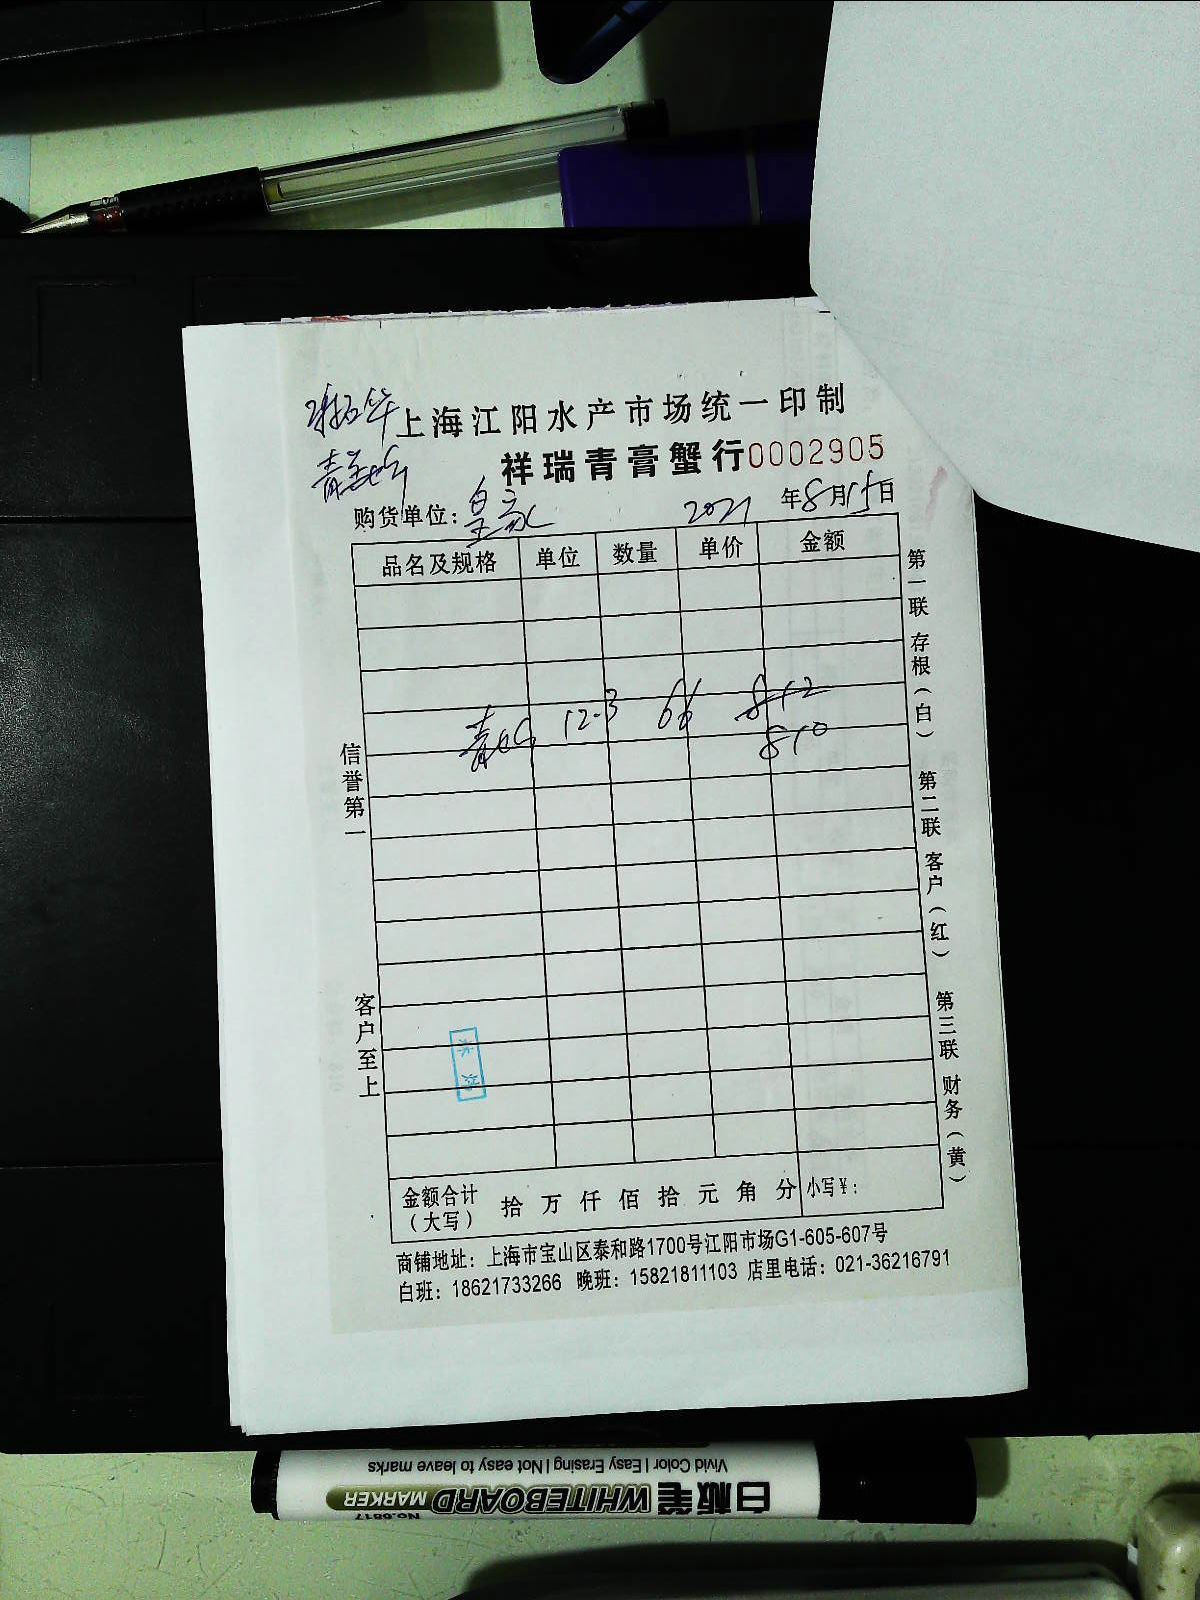 上海江阳水产市场统一印制
祥瑞青膏蟹行 0002905
购货单位：皇家 2021 年 8 月 15 日
品名及规格 单位 数量 单价 金额
12.3 66 812
810
信誉第一
客户至上
第一联 存根（白） 第二联 客户（红） 第三联 财务（黄）
金额合计（大写） 拾 万 仟 佰 拾 元 角 分 小写¥：
商铺地址：上海市宝山区泰和路1700号江阳市场G1-605-607号
白班：18621733266 晚班：15821811103 店里电话：021-36216791
Vivid Color | Easy Erasing | Not easy to leave marks
白板笔 WHITEBOARD MARKER
No.6817